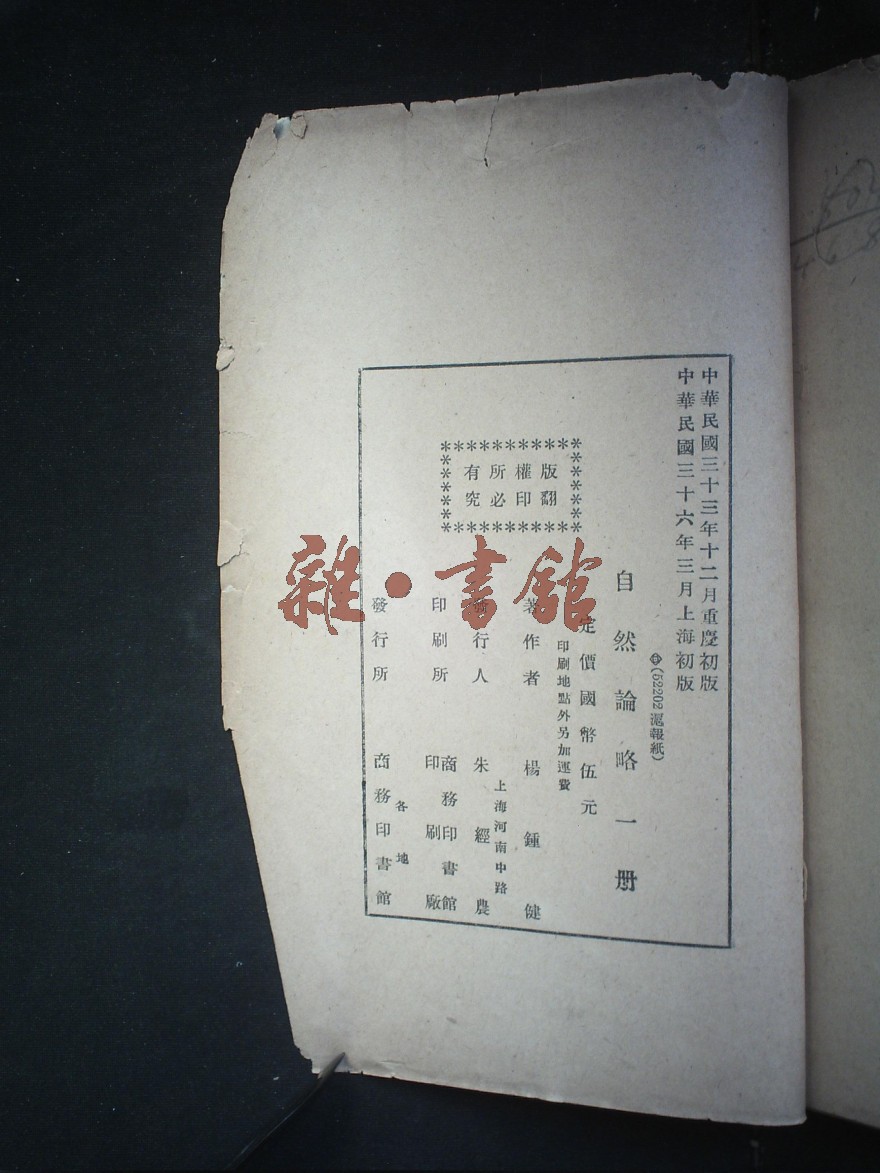 中華民國三十三年十二月重慶初版
中華民國三十六年三月上海初版
(52202 滬報紙)
自然論略一册
定價國幣伍元
印刷地點外另加運費
版權所有
翻印必究
著作者 楊鍾健
發行人 朱經農
上海河南中路
印刷所 商務印書館
印刷廠
發行所 商務印書館
各地
雜·書館